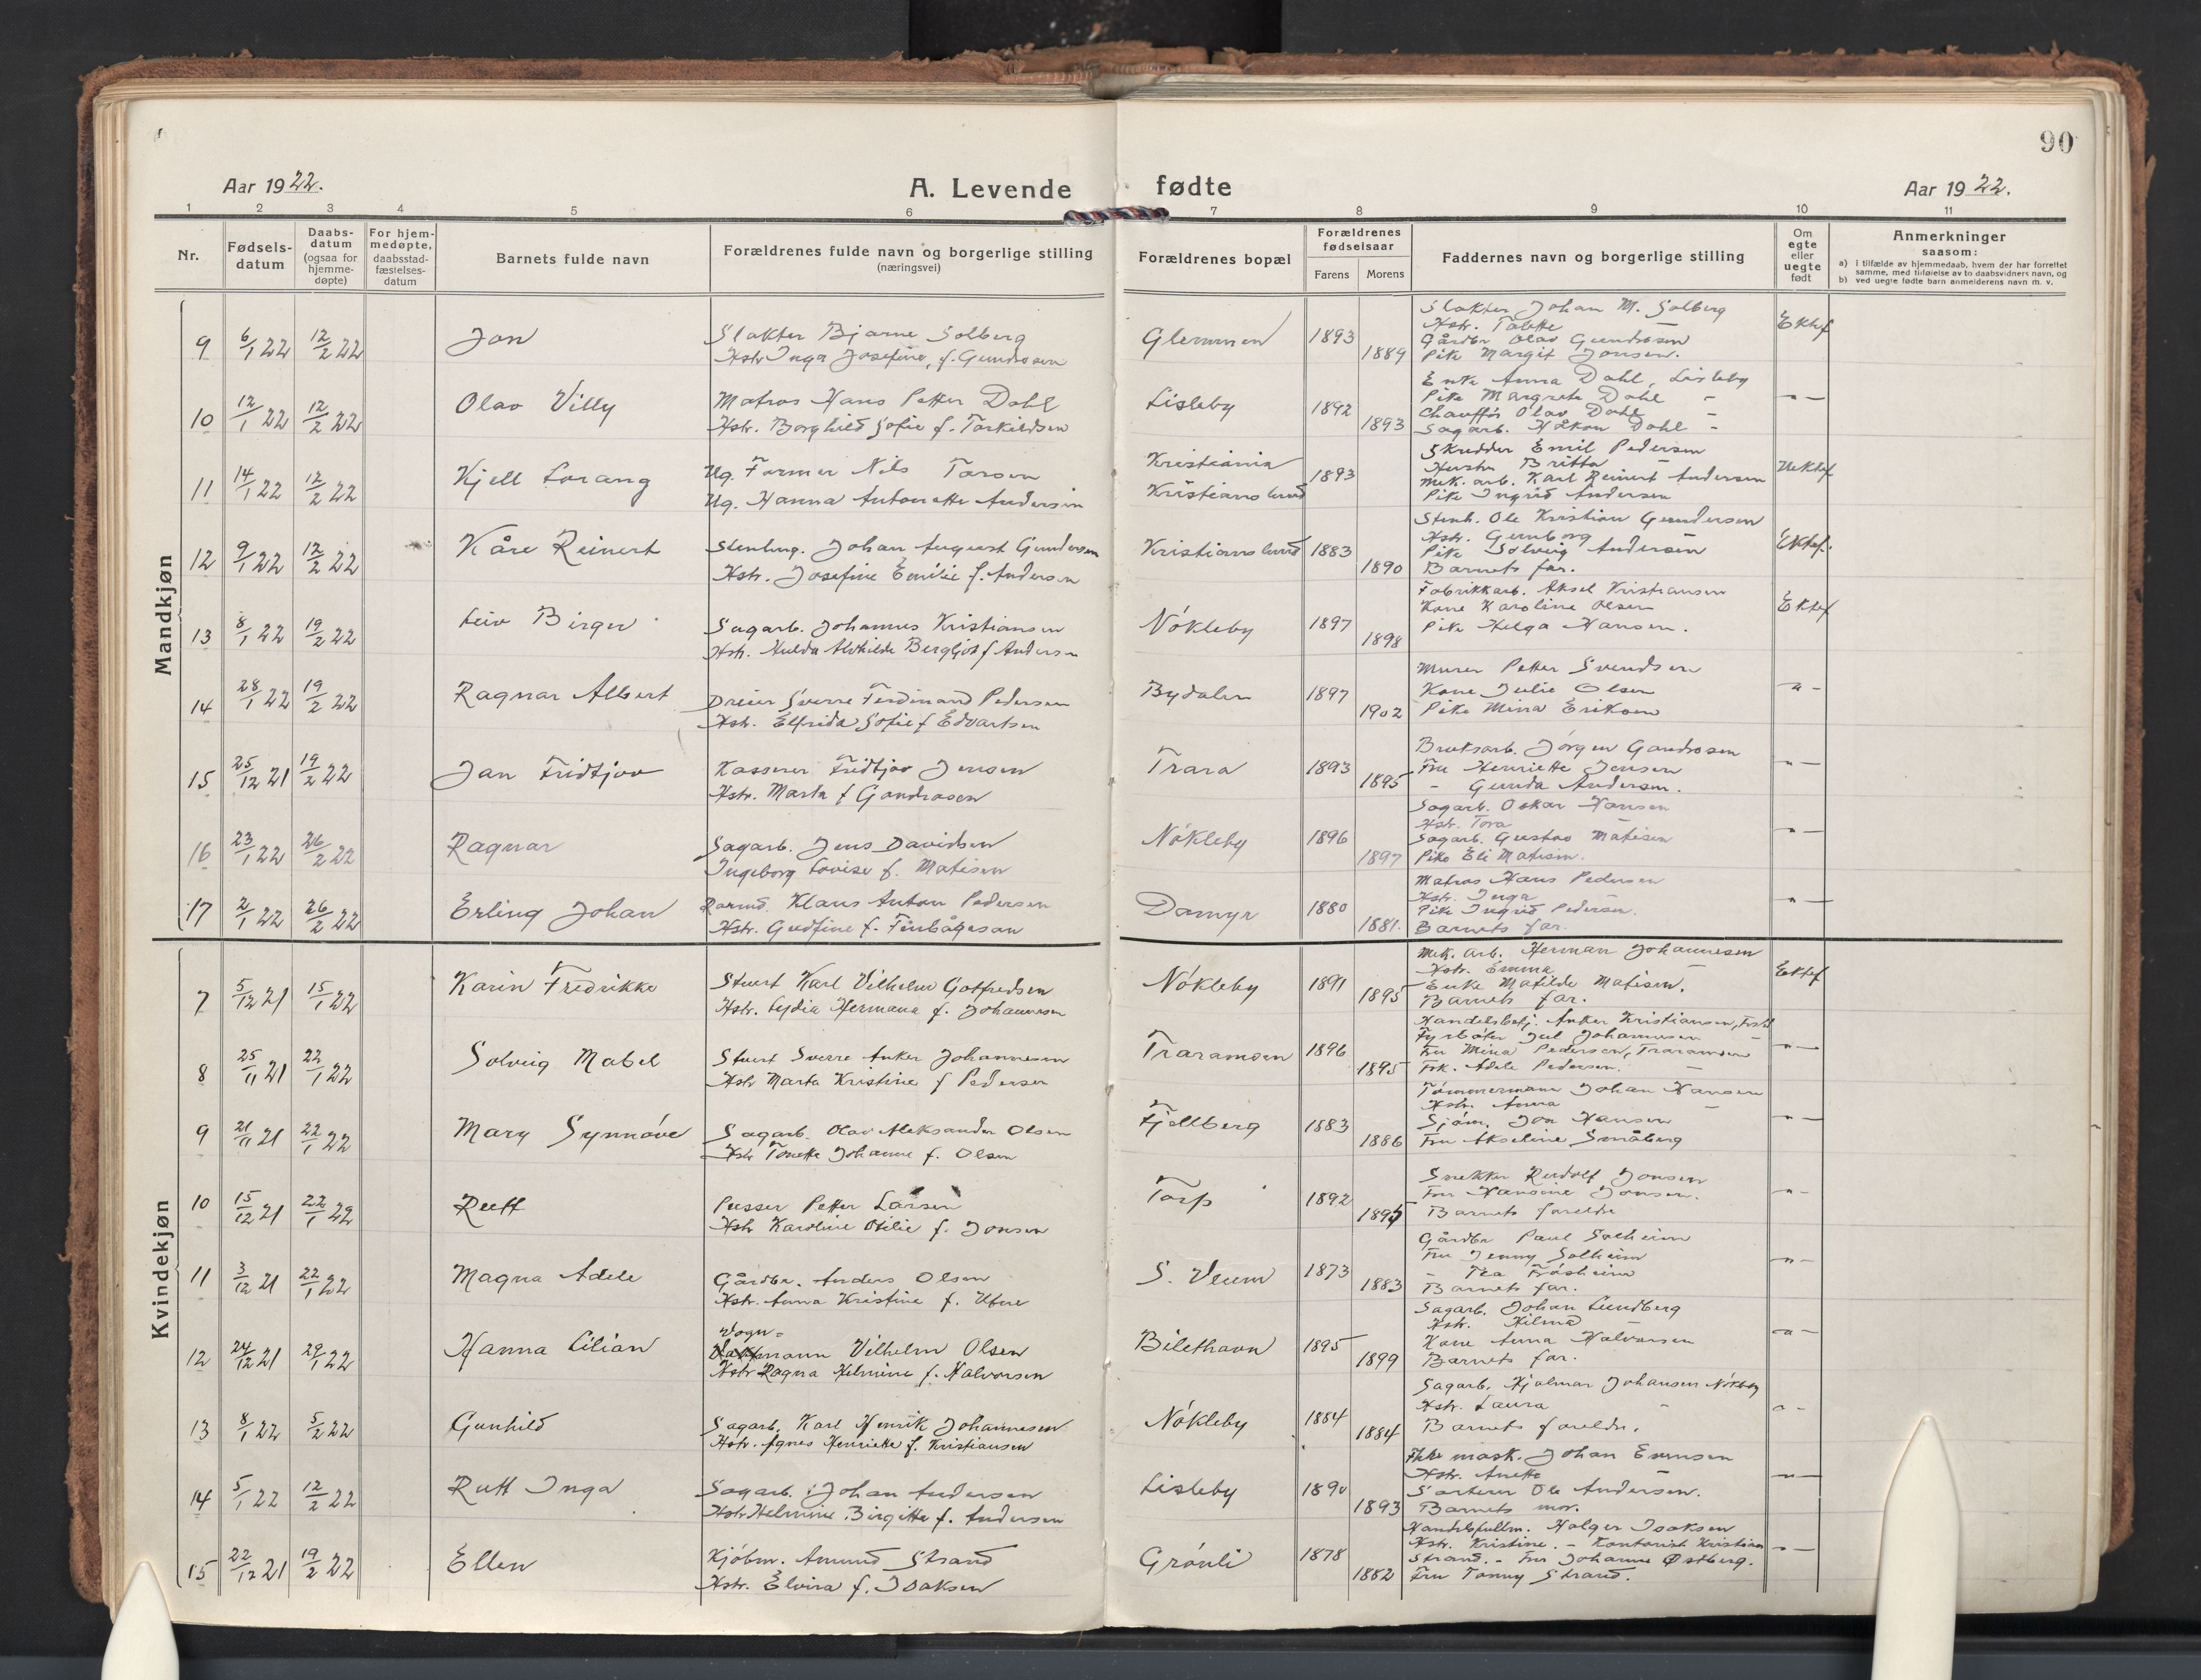 90
Aar 1922.
A. Levende fødte
Aar 1922.
1 2 3 4 5 6 7 8 9 10 11
Nr.
Fødsels-
datum
Daabs-
datum
(ogsaa for
hjemme-
døpte)
For hjem-
medøpte,
daabsstad-
fæstelses-
datum
Barnets fulde navn
Forældrenes fulde navn og borgerlige stilling
(næringsvei)
Forældrenes bopæl
Forældrenes
fødselsaar
Farens Morens
Faddernes navn og borgerlige stilling
Om
egte
eller
uegte
født
Anmerkninger
saasom:
a) i tilfælde av hjemmedaab, hvem der har forrettet
samme, med tilføielse av to daabsvidners navn, og
b) ved uegte fødte barn anmelderens navn m. v.
Mandkjøn
9 6/1 22 12/2 22 Jon
Slakter Bjarne Solberg
Hstr Inga Josefine, f. Gundrosen
Glemmen 1893 1889
Slakter Johan M. Solberg
Hstr. Tolette
Gårdbr Olav Gundrosen
Pike Margit Jonsen.
Ektef
10 12/1 22 12/2 22 Olav Villy
Matros Hans Petter Dahl
Hstr. Borghild Sofie f. Torkildsen
Lisleby 1892 1893
Enke Anna Dahl, Lisleby
Pike Margrete Dahl -
Chauffør Olav Dahl -
Sagarb. Håkon Dahl -
- " -
11 14/1 22 12/2 22 Kjell Lorang
Ug. Farmer Nils Torsen
Ug. Hanna Antonette Andersen
Kristiania
Kristianslund
1893
Skredder Emil Pedersen
Hustru Britta -
Mek. arb. Karl Reinert Andersen
Pike Ingrid Andersen
Uektef
12 9/1 22 12/2 22 Kåre Reinert
Stenhug. Johan August Gundersen
Hstr. Josefine Emilie f. Andersen
Kristianslund 1883 1890
Stenh. Ole Kristian Gundersen
Hstr. Gunborg -
Pike Solveig Andersen
Barnets far.
Ektef.
13 8/1 22 19/2 22 Leiv Birger
Sagarb. Johannes Kristiansen
Hstr. Hulda Alvhilde Bergljot f Andersen
Nökleby 1897 1898
Fabrikkarb. Aksel Kristiansen
Kone Karoline Olsen
Pike Helga Hansen.
Ektef
14 28/1 22 19/2 22 Ragnar Albert
Dreier Sverre Ferdinand Pedersen
Hstr. Elfrida Sofie f Edvartsen
Bydalen 1897 1902
Murer Petter Svendsen
Kone Julie Olsen
Pike Mina Eriksen
- " -
15 25/12 21 19/2 22 Jan Fridtjov
Kasserer Fridtjov Jensen
Hstr. Marta f Gondrosen
Trara 1893 1895
Bruksarb. Jörgen Gondrosen
Fru Henriette Jensen
- Gunda Andersen.
- " -
16 23/1 22 26/2 22 Ragnar
Sagarb. Jens Davidsen
Ingeborg Lovise f. Matisen
Nökleby 1896 1897
Sagarb. Oskar Hansen
Hstr. Tora -
Sagarb. Gustav Matisen
Pike Eli Matisen.
- " -
17 2/1 22 26/2 22 Erling Johan
Klaus Anton Pedersen
Hstr. Gudfine f.
Damyr 1880 1881.
Matros Hans Pedersen
Hstr. Inga -
Pike Ingrid Pedersen.
Barnets far.
- " -
Kvindekjøn
7 5/12 21 15/1 22 Karin Fredrikke
Stuert Karl Vilhelm Gotfredsen
Hstr. Lydia Hermana f. Johannesen
Nökleby 1891 1895
Mek. arb. Herman Johannesen
Hstr. Emma -
Enke Matilde Matisen.
Barnets far.
Ektef
8 25/11 21 22/1 22 Solveig Mabel
Stuert Sverre Anker Johannesen
Hstr Marta Kristine f Pedersen
Traramoen 1896 1895
Handelsbetj. Anker Kristiansen,
Fyrböter Jul Johannesen -
Fru Mina Pedersen, Traramoen
Frk. Adele Pedersen. -
- " -
9 21/11 21 22/1 22 Mary Synnöve
Sagarb. Olav Aleksander Olsen
Hstr Tonette Johanne f. Olsen
Fjellberg 1883 1886
Tömmermann Johan Hansen
Hstr. Anna -
Sjöm. Jon Hansen
Fru Akseline Småberg
- " -
10 15/12 21 22/1 22 Rutt
Pusser Petter Larsen
Hstr Karoline Otilie f. Jonsen
Torp 1892 1895
Snekker Rudolf Jonsen
Fru Hansine Jonsen.
Barnets foreldre
- " -
11 3/12 21 22/1 22 Magna Adele
Gårdbr. Anders Olsen
Hstr. Anna Kristine f. Ufere
S. Veum 1873 1883
Gårdbr Paul Solheim
Fru Jenny Solheim
- Tea Fròsheim
Barnets far.
- " -
12 24/12 21 29/1 22 Hanna Lilian
Vogn-
mann Vilhelm Olsen
Hstr Ragna Helmine f. Halvorsen
Bilethavn 1895 1899
Sagarb. Johan Lundberg
Hstr. Hilma -
Kone Anna Halvorsen
Barnets far.
- " -
13 8/1 22 5/2 22 Gunhild
Sagarb. Karl Henrik Johannesen
Hstr. Agnes Henriette f. Kristiansen
Nökleby 1884 1884
Sagarb. Hjalmar Johansen Nökleby
Hstr. Laura -
Barnets foreldre.
- " -
14 5/1 22 12/2 22 Rutt Inga
Sagarb. Johan Andersen
Hstr Helmine Birgitte f. Andersen
Lisleby 1890 1893
mask. Johan Evensen
Hstr. Anette -
Sorterer Ole Andersen.
Barnets mor.
- " -
15 22/12 21 19/2 22 Ellen
Kjöbm. Amund Strand
Hstr. Elvira f. Isaksen
Grönli 1878 1882
Handelsfullm. Holger Isaksen
Hstr. Kristine. - Kontorist Kristian
Strand. - Fru Johanne Østberg.
Fru Tonny Strand.
- " -